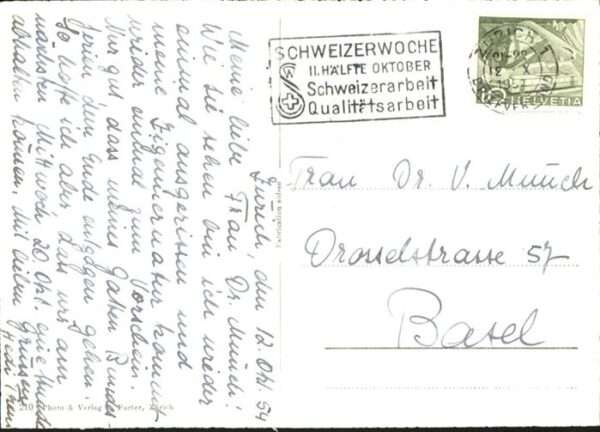 Zürich, den 12. Okt. 54
Meine liebe Frau Dr. Münch!
Wie sie sehen bin ich wieder
einmal ausgerissen und
meine Zigeunernatur kommt
wieder einmal zum Vorschein.
Nur gut dass meine
Ferien dem Ende entgegen gehen.
So hoffe ich aber dass uns am
nächsten Mittwoch 20 Okt. eine Stunde
abhalten können, mit lieben Grüssen
SCHWEIZERWOCHE
II. HÄLFTE OKTOBER
Schweizerarbeit
Qualitätsarbeit
ZÜRICH 1
HELVETIA
Frau Dr. V. Münch
Drosselstrasse 57
Basel
210 Photo & Verlag Furter, Zürich